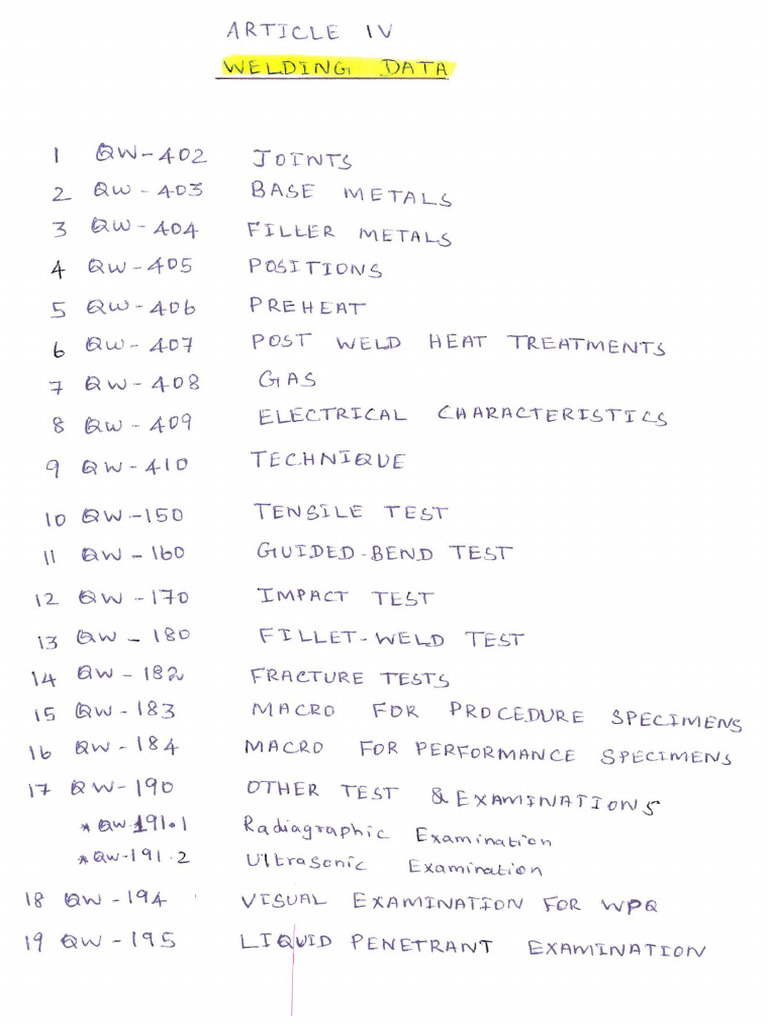 ARTICLE IV
WELDING DATA
1 QW-402 JOINTS
2 QW-403 BASE METALS
3 QW-404 FILLER METALS
4 QW-405 POSITIONS
5 QW-406 PREHEAT
6 QW-407 POST WELD HEAT TREATMENTS
7 QW-408 GAS
8 QW-409 ELECTRICAL CHARACTERISTICS
9 QW-410 TECHNIQUE
10 QW-150 TENSILE TEST
11 QW-160 GUIDED-BEND TEST
12 QW-170 IMPACT TEST
13 QW-180 FILLET-WELD TEST
14 QW-182 FRACTURE TESTS
15 QW-183 MACRO FOR PROCEDURE SPECIMENS
16 QW-184 MACRO FOR PERFORMANCE SPECIMENS
17 QW-190 OTHER TEST & EXAMINATIONS
* QW-191.1 Radiagraphic Examination
* QW-191.2 Ultrasonic Examination
18 QW-194 VISUAL EXAMINATION FOR WPQ
19 QW-195 LIQUID PENETRANT EXAMINATION